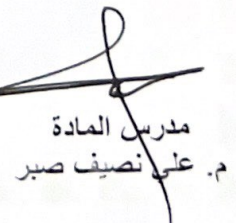 مدرس المادة
م. علي نصيف صبر